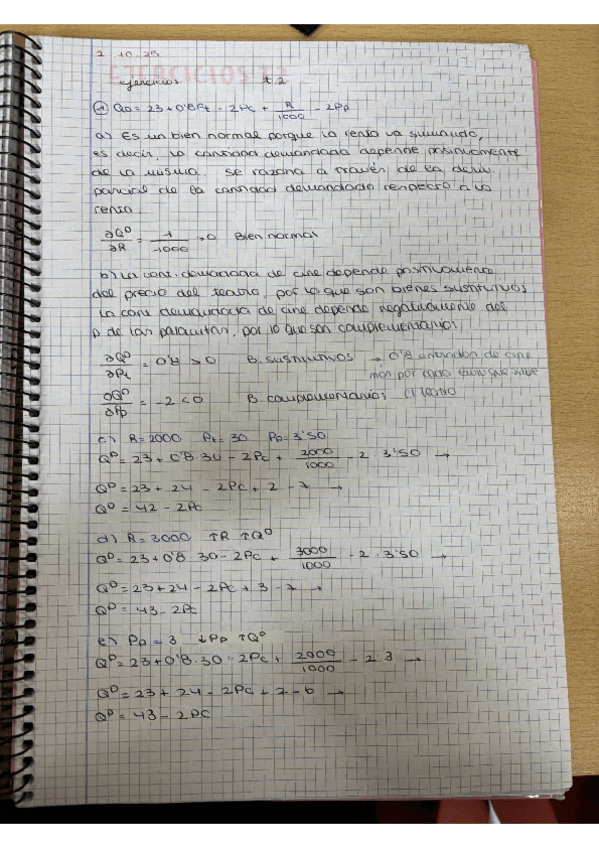 2 10.23
EJERCICIOS T2
Ejercicios t.2
① QD = 23 + 0'8Pt - 2Pc + R/1000 - 2Pp
a) Es un bien normal porque la renta va sumando,
es decir, la cantidad demandada depende positivamente
de la misma. Se razona a través de la deriv.
parcial de la cantidad demandada respecto a la
renta
∂Q^D/∂R = 1/1000 >0 Bien normal
b) La cant. demandada de cine depende positivamente
del precio del teatro, por lo que son bienes sustitutivos
La cant demandada de cine depende negativamente del
p de las palomitas, por lo que son complementarios
∂Q^D/∂Pt = 0'8 > 0 B. sustitutivos → 0'8 entradas de cine
más por cada euro que sube
∂Q^D/∂Pp = -2 < 0 B. complementarios el teatro
c) R=2000 Pt=30 Pp=3'50
Q^D = 23 + 0'8·30 - 2Pc + 2000/1000 - 2·3'50 →
Q^D = 23 + 24 - 2Pc + 2 - 7 →
Q^D = 42 - 2Pc
d) R=3000 ↑R ↑Q^D
Q^D = 23 + 0'8·30 - 2Pc + 3000/1000 - 2·3'50 →
Q^D = 23 + 24 - 2Pc + 3 - 7 →
Q^D = 43 - 2Pc
e) Pp = 3 ↓Pp ↑Q^D
Q^D = 23 + 0'8·30 - 2Pc + 2000/1000 - 2·3 →
Q^D = 23 + 24 - 2Pc + 2 - 6 →
Q^D = 43 - 2Pc